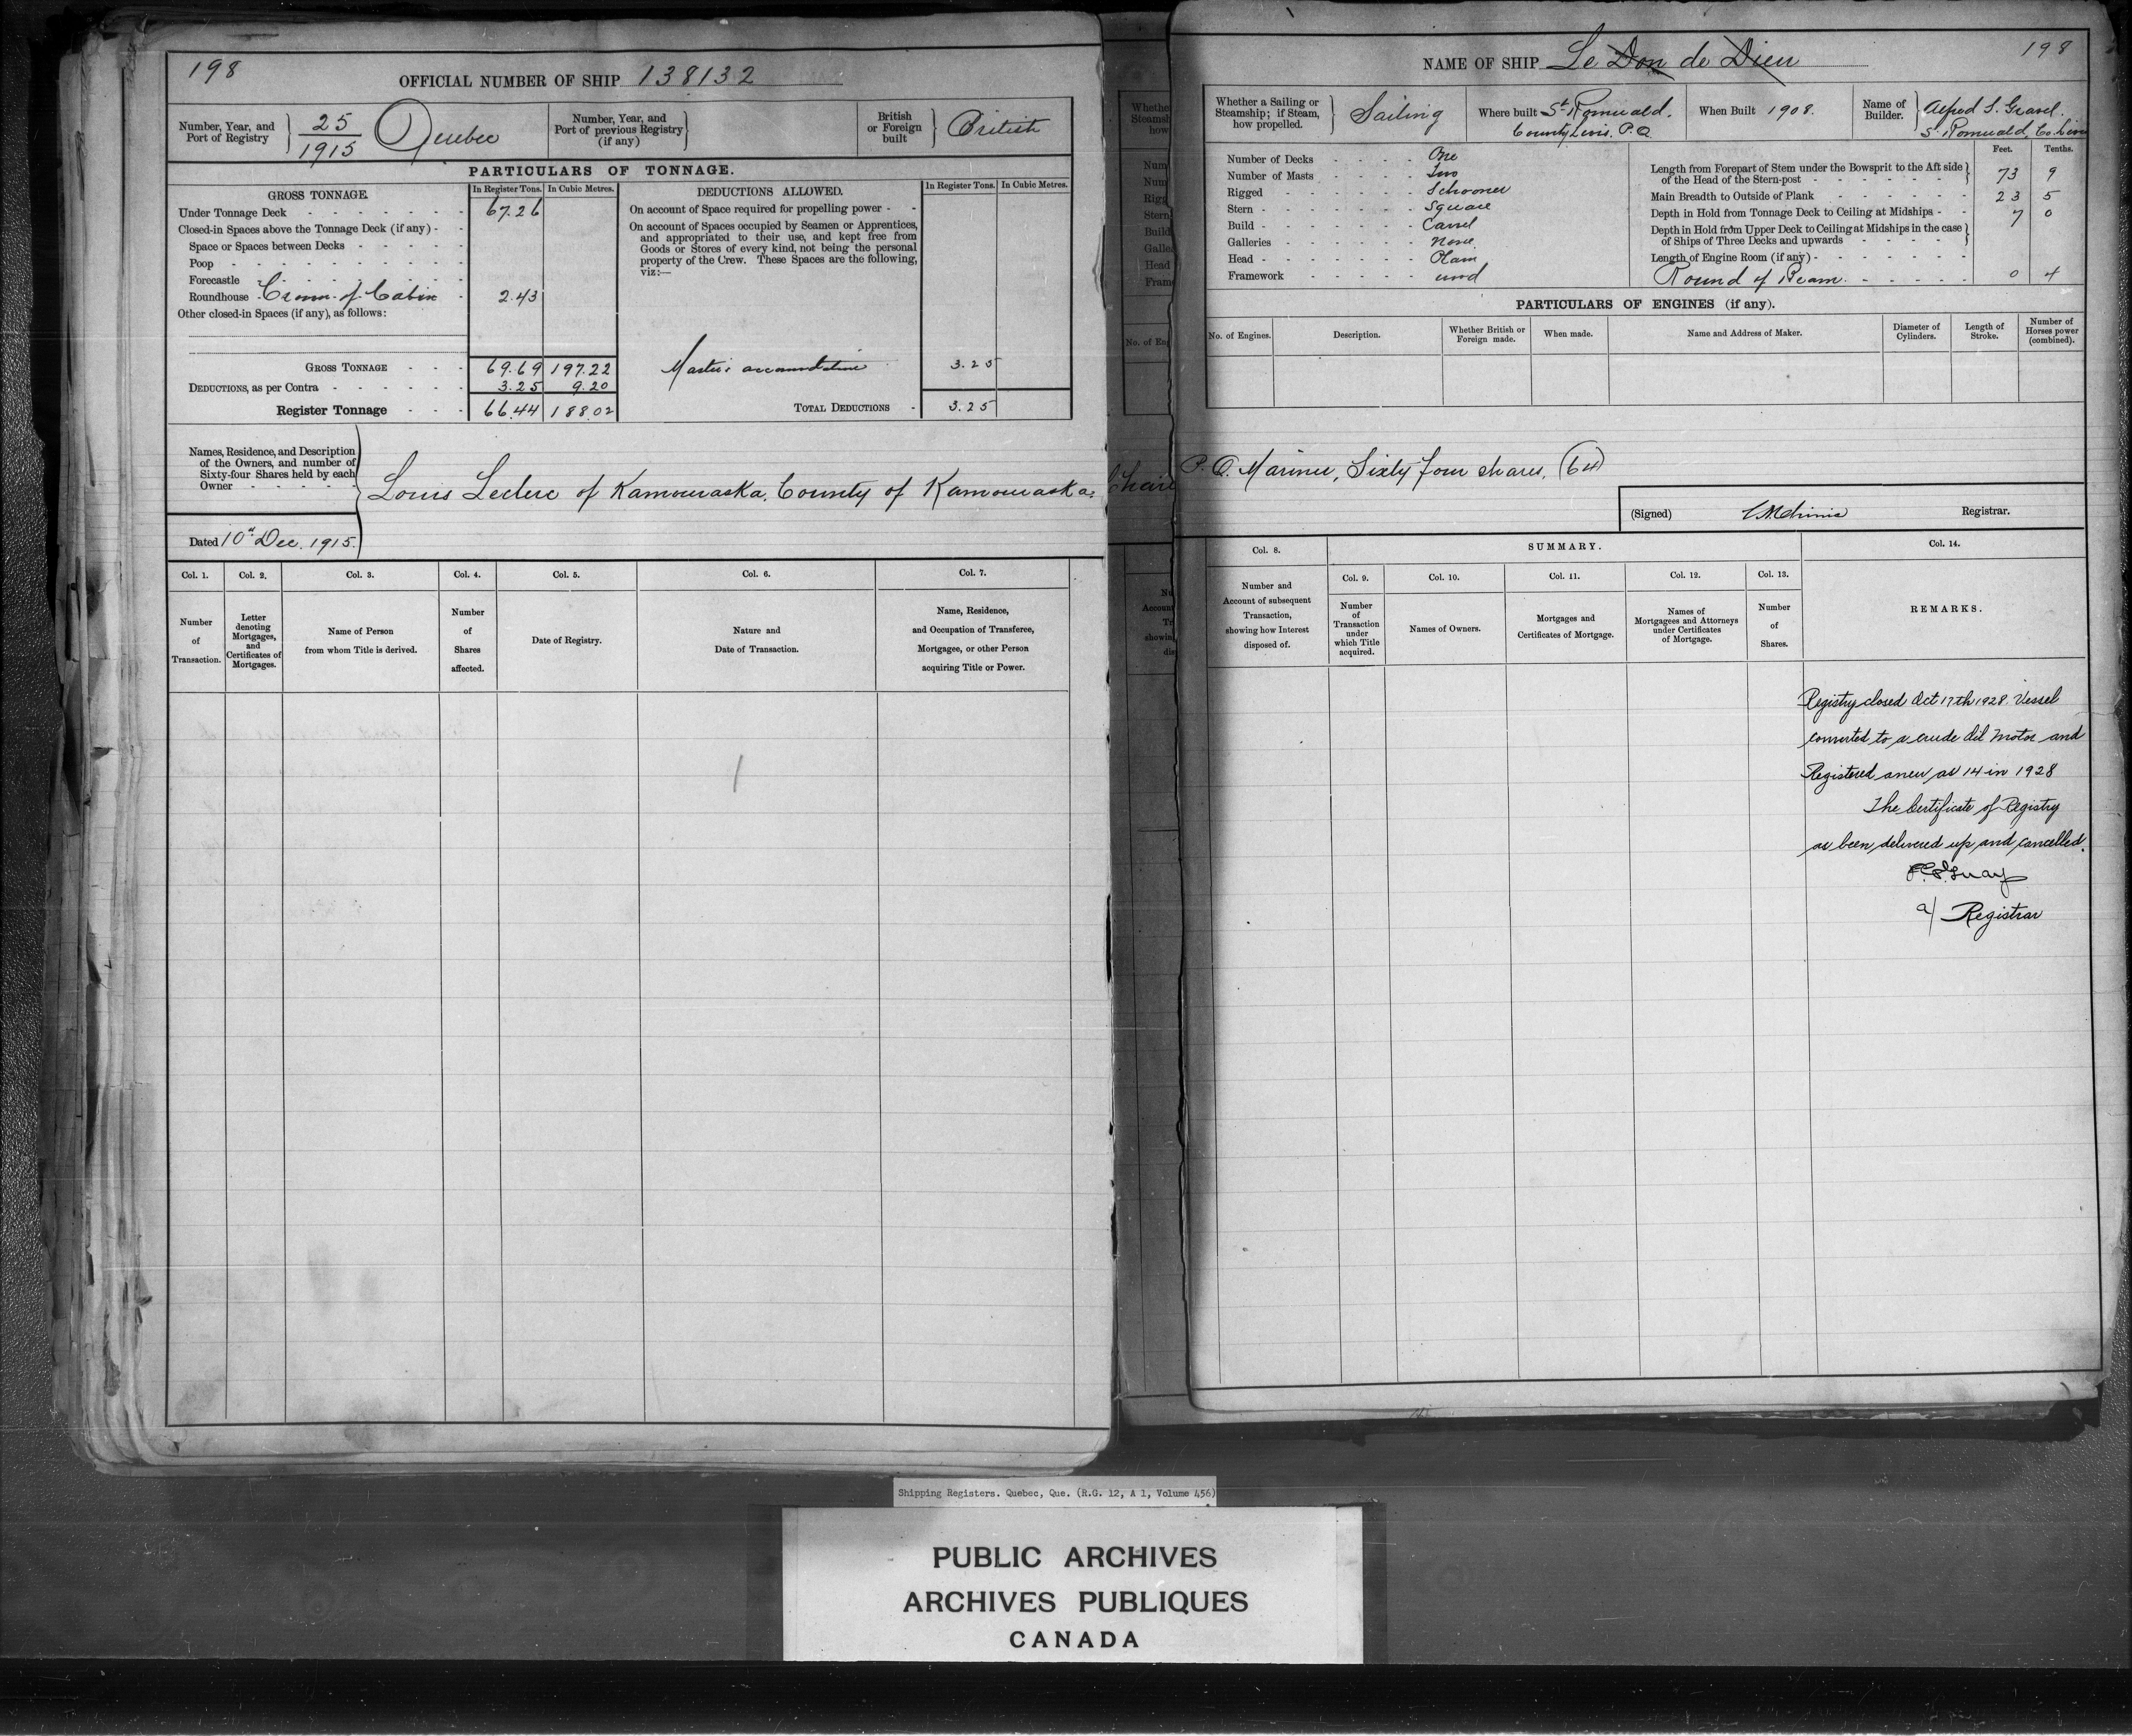 198
OFFICIAL NUMBER OF SHIP 138132
Number, Year, and
Port of Registry
25
1915
Quebec
Number, Year, and
Port of previous Registry
(if any)
British
or Foreign
built
British
PARTICULARS OF TONNAGE.
GROSS TONNAGE.
In Register Tons.
In Cubic Metres.
DEDUCTIONS ALLOWED.
In Register Tons.
In Cubic Metres.
Under Tonnage Deck 67.26
Closed-in Spaces above the Tonnage Deck (if any)
Space or Spaces between Decks
Poop
Forecastle
Roundhouse Crown of Cabin 2.43
Other closed-in Spaces (if any), as follows:
On account of Space required for propelling power
On account of Spaces occupied by Seamen or Apprentices,
and appropriated to their use, and kept free from
Goods or Stores of every kind, not being the personal
property of the Crew. These Spaces are the following,
viz:—
GROSS TONNAGE 69.69 197.22
Masters accomodation 3.25
DEDUCTIONS, as per Contra 3.25 9.20
Register Tonnage 66.44 188.02
TOTAL DEDUCTIONS 3.25
Names, Residence, and Description
of the Owners, and number of
Sixty-four Shares held by each
Owner
Louis Leclerc of Kamouraska, County of Kamouraska,
Dated 10th Dec. 1915.
Col. 1.
Col. 2.
Col. 3.
Col. 4.
Col. 5.
Col. 6.
Col. 7.
Number
of
Transaction.
Letter
denoting
Mortgages,
and
Certificates of
Mortgages.
Name of Person
from whom Title is derived.
Number
of
Shares
affected.
Date of Registry.
Nature and
Date of Transaction.
Name, Residence,
and Occupation of Transferee,
Mortgagee, or other Person
acquiring Title or Power.
NAME OF SHIP Le Don de Dieu
198
Whether a Sailing or
Steamship; if Steam,
how propelled.
Sailing
Where built St Romuald,
County Levis. P.Q.
When Built 1908.
Name of
Builder.
Alfred S. Gravel.
St Romuald, Co. Levis
Number of Decks One
Number of Masts Two
Rigged Schooner
Stern Square
Build Carvel
Galleries None
Head Plain
Framework wood
Feet. Tenths.
Length from Forepart of Stem under the Bowsprit to the Aft side
of the Head of the Stern-post 73 9
Main Breadth to Outside of Plank 23 5
Depth in Hold from Tonnage Deck to Ceiling at Midships 7 0
Depth in Hold from Upper Deck to Ceiling at Midships in the case
of Ships of Three Decks and upwards
Length of Engine Room (if any)
Round of Beam 0 4
PARTICULARS OF ENGINES (if any).
No. of Engines.
Description.
Whether British or
Foreign made.
When made.
Name and Address of Maker.
Diameter of
Cylinders.
Length of
Stroke.
Number of
Horses power
(combined).
P.Q. Mariner, Sixty four shares, (64)
(Signed)
Registrar.
Col. 8.
SUMMARY.
Col. 14.
Col. 9.
Col. 10.
Col. 11.
Col. 12.
Col. 13.
Number and
Account of subsequent
Transaction,
showing how Interest
disposed of.
Number
of
Transaction
under
which Title
acquired.
Names of Owners.
Mortgages and
Certificates of Mortgage.
Names of
Mortgagees and Attorneys
under Certificates
of Mortgage.
Number
of
Shares.
REMARKS.
Registry closed Oct 17th 1928. Vessel
converted to a crude Oil Motor and
Registered anew as 14 in 1928
The Certificate of Registry
as been delivered up and cancelled.
a/ Registrar
Shipping Registers. Quebec, Que. (R.G. 12, A 1, Volume 456)
PUBLIC ARCHIVES
ARCHIVES PUBLIQUES
CANADA